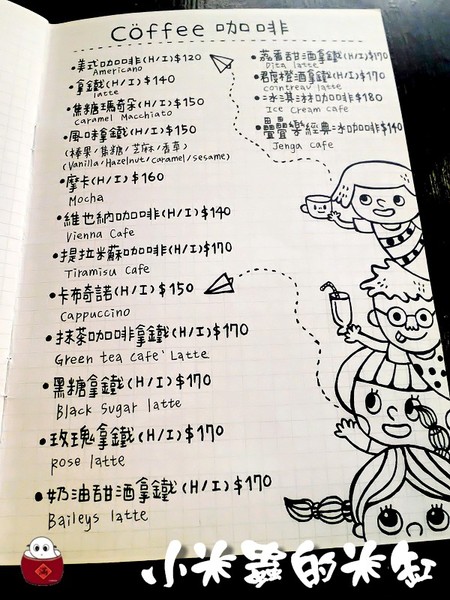 Coffee 咖啡
•美式咖啡(H/I)$120
Americano
•拿鐵(H/I)$140
latte
•焦糖瑪奇朵(H/I)$150
Caramel Macchiato
•風味拿鐵(H/I)$150
(榛果/焦糖/芝麻/香草)
(Vanilla/Hazelnut/caramel/sesame)
•摩卡(H/I)$160
Mocha
•維也納咖啡(H/I)$140
Vienna Cafe
•提拉米蘇咖啡(H/I)$170
Tiramisu Cafe
•卡布奇諾(H/I)$150
Cappuccino
•抹茶咖啡拿鐵(H/I)$170
Green tea Cafe' Latte
•黑糖拿鐵(H/I)$170
Black Sugar latte
•玫瑰拿鐵(H/I)$170
rose latte
•奶油甜酒拿鐵(H/I)$170
Baileys latte
•荔香甜酒拿鐵(H/I)$170
Dita latte
•君度橙酒拿鐵(H/I)$170
cointreau latte
•冰淇淋咖啡$180
Ice Cream Cafe
•疊疊樂經典冰咖啡$140
Jenga Cafe
小米蟲的米缸